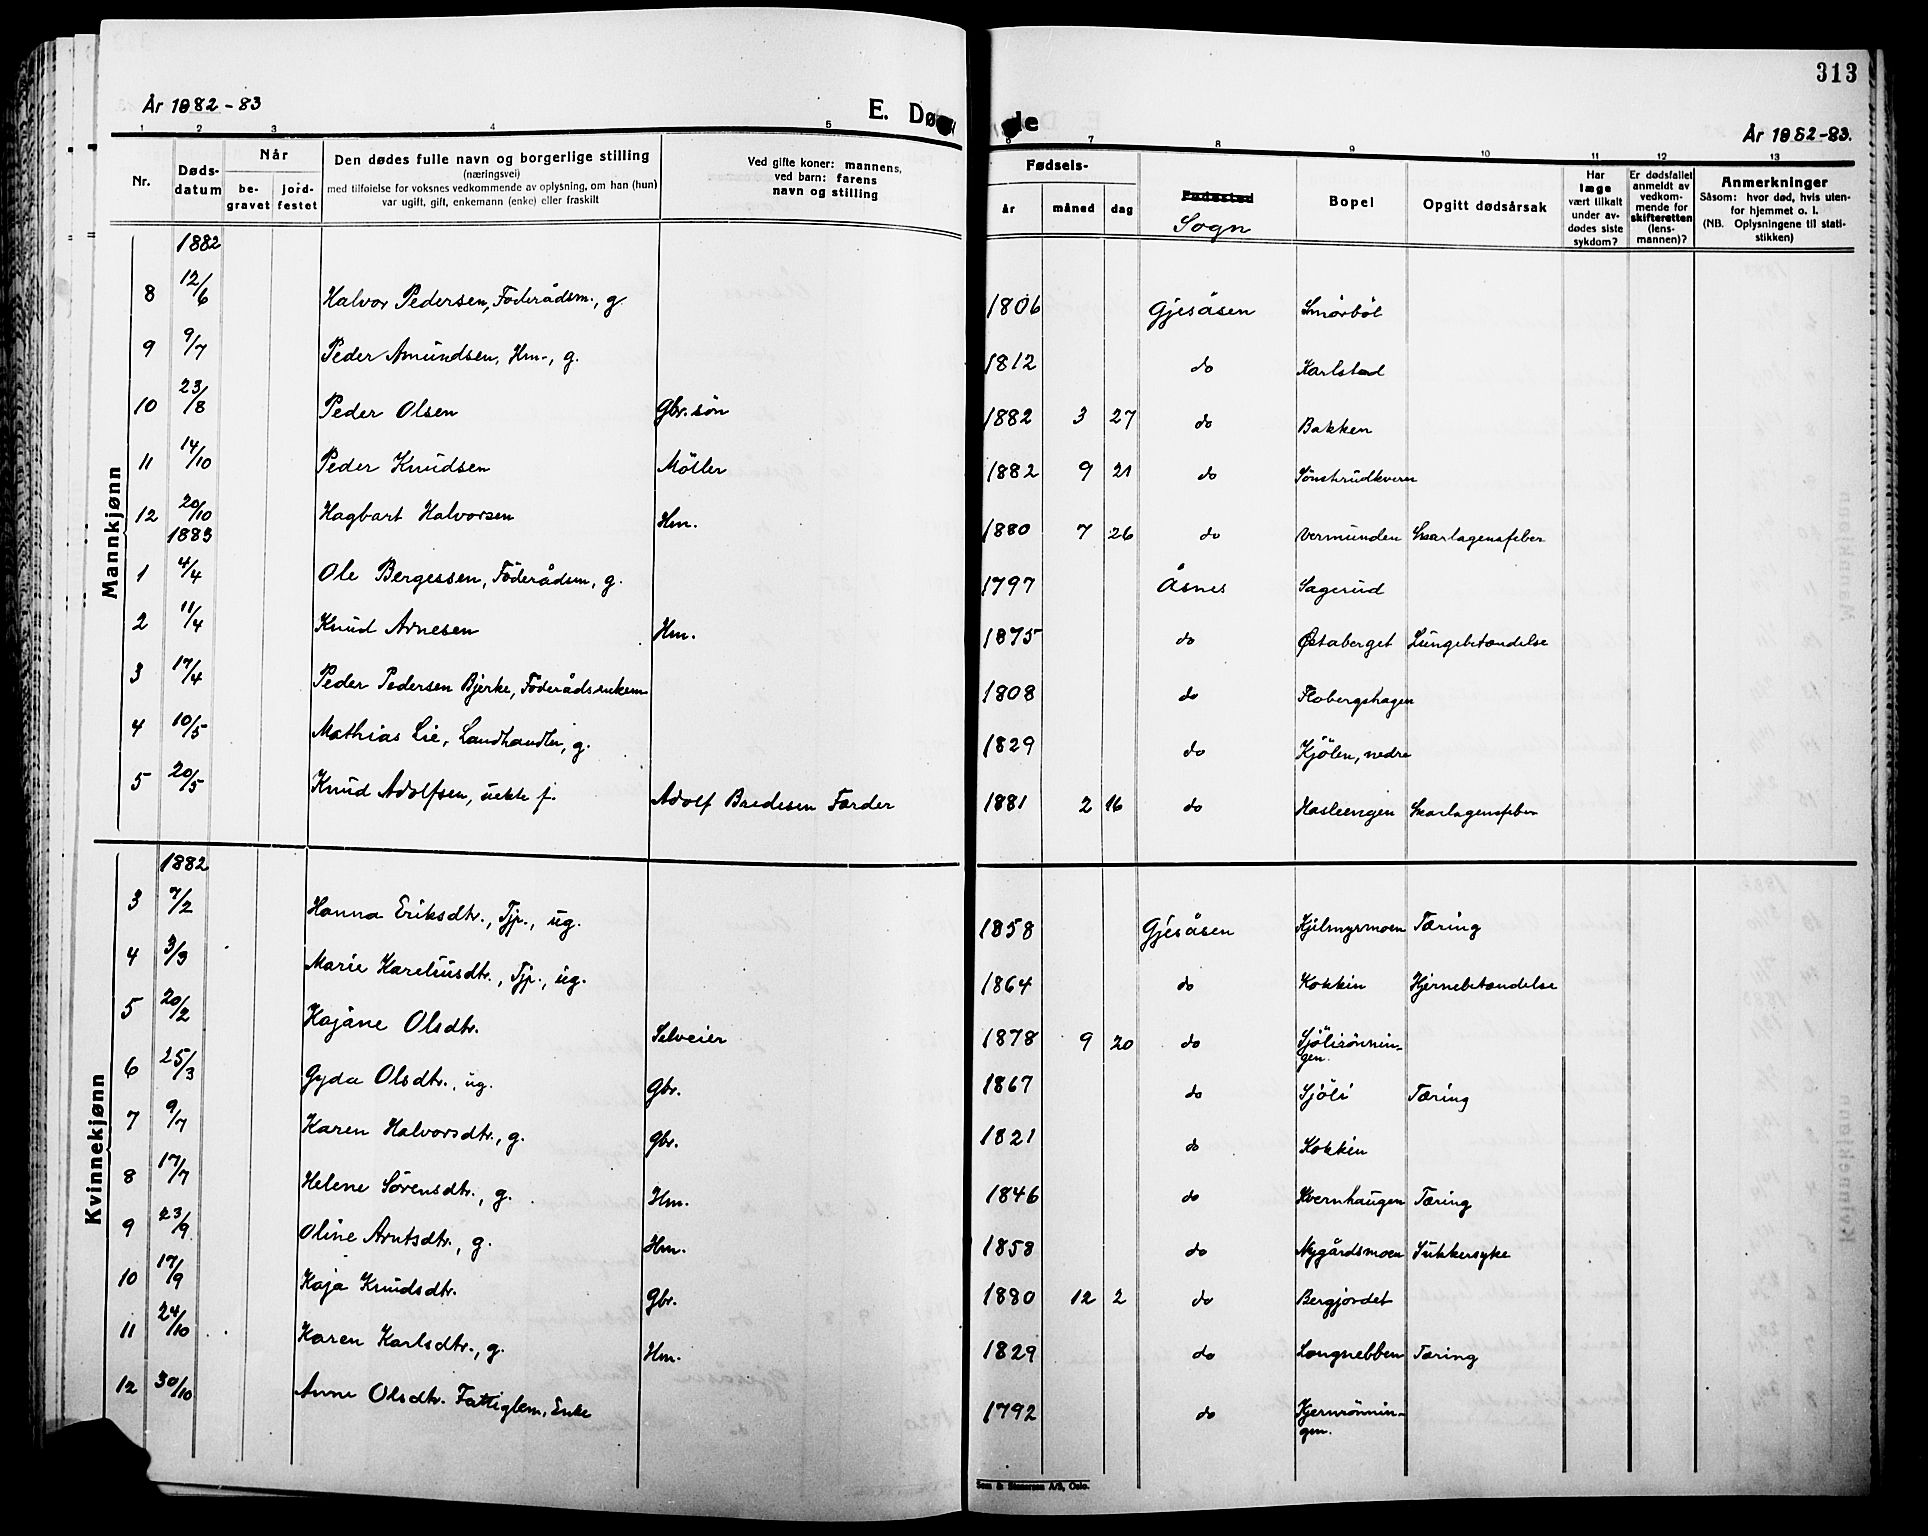 313
År 1882-83
E. Dø de
År 1882-83.
1 2 3 4 5 6 7 8 9 10 11 12 13
Nr.
Døds-
datum
Når
be-
gravet
jord-
festet
Den dødes fulle navn og borgerlige stilling
(næringsvei)
med tilføielse for voksnes vedkommende av oplysning, om han (hun)
var ugift, gift, enkemann (enke) eller fraskilt
Ved gifte koner: mannens,
ved barn: farens
navn og stilling
Fødsels-
år
måned
dag
Fødested
Sogn
Bopel
Opgitt dødsårsak
Har
læge
vært tilkalt
under av-
dødes siste
sykdom?
Er dødsfallet
anmeldt av
vedkom-
mende for
skifteretten
(lens-
mannen)?
Anmerkninger
Såsom: hvor død, hvis uten-
for hjemmet o. l.
(NB. Oplysningene til stati-
stikken)
Mannkjønn
1882
8 12/6 Halvor Pedersen, Föderådsm., g 1806 Gjesåsen Smörböl
9 9/7 Peder Amundsen, Hm., g. 1812 do Karlstad
10 23/8 Peder Olsen Gbr. søn 1882 3 27 do Bakken
11 14/10 Peder Knudsen Möller 1882 9 21 do Sönstrudkvern
12 20/10 Hagbart Halvorsen Hm. 1880 7 26 do Vermunden Skarlagensfeber
1883
1 4/4 Ole Bergessen, Föderådsm, g. 1797 Åsnes Sagerud
2 11/4 Knud Arnesen Hm. 1875 do Østaberget Lungebetændelse
3 17/4 Peder Pedersen Bjerke, Föderådsenkem 1808 do Flobergshagen
4 10/5 Mathias Lie, Landhandler, g. 1829 do Kjölen, nedre
5 20/5 Knud Adolfsen, uekte f. Adolf Bredesen Førder 1881 2 16 do Hasleengen Skarlagensfeber
Kvinnekjønn
1882
3 7/2 Hanna Eriksdtr., Tjp., ug. 1858 Gjesåsen Kjelmyrmoen Tæring
4 3/3 Marie Kareliusdtr., Tjp., ug. 1864 do Kokkin Hjernebetændelse
5 20/2 Kajane Olsdtr. Selveier 1878 9 20 do Sjölirönnin-
gen.
6 25/3 Gyda Olsdtr., ug. Gbr. 1867 do Sjöli Tæring
7 9/7 Karen Halvorsdtr., g. Gbr. 1821 do Kokkin
8 17/7 Helene Sörensdtr., g. Hm. 1846 do Kvernhaugen Tæring
9 23/9 Oline Arntsdtr., g. Hm. 1858 do Nygårdsmoen Sukkersyke
10 17/9 Kaja Knudsdtr. Gbr. 1880 12 2 do Bergjordet
11 24/10 Karen Karlsdtr., g. Hm. 1829 do Langnebben Tæring
12 30/10 Anne Olsdtr. Fattiglem, Enke 1792 do Kjernrönnin-
gen.
Sem & Stenersen A/S, Oslo.